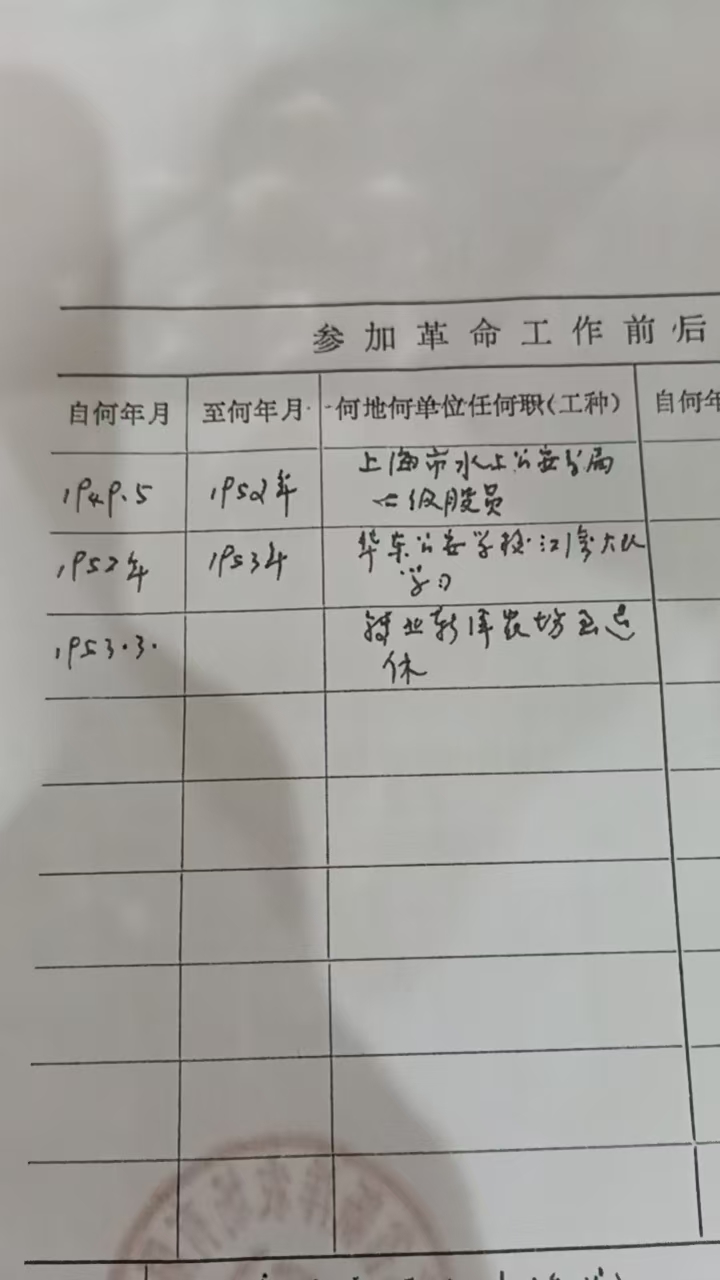 参加革命工作前后
自何年月 至何年月 何地何单位任何职(工种) 自何年
1949.5 1952年 上海市水上公安分局
七级股员
1952年 1953年 华东公安学校 大队
学习
1953.3. 就业 农场至退
休